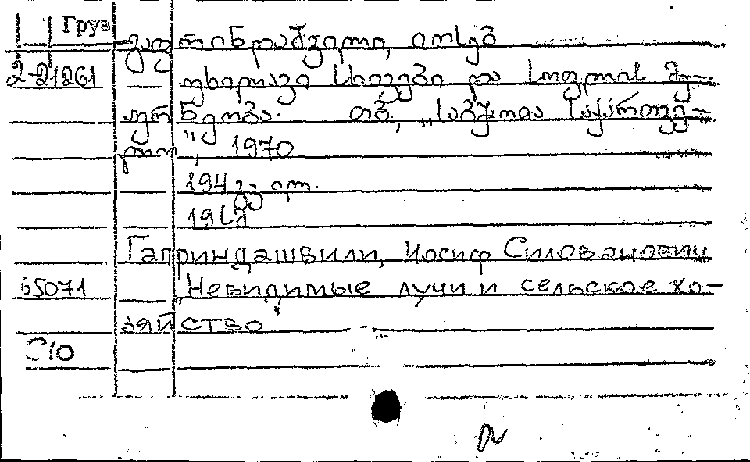 Груз
გაფრინდაშვილი, იოსებ
2-21261 უხილავი სხივები და სოფლის მე-
ურნეობა. თბ., „საბჭოთა საქართვე-
ლო", 1970
194 გვ.
Гаприндашвили, Иосиф Силованович
65071 "Невидимые лучи и сельское хо-
зяйство"